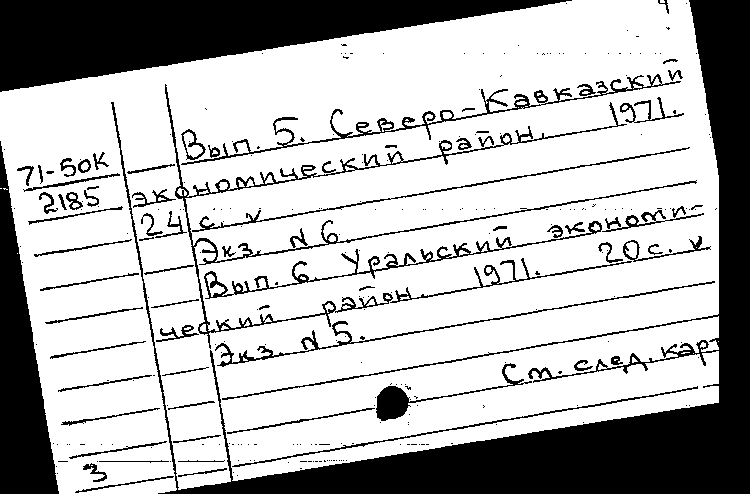 4
Вып. 5. Северо-Кавказский
71-50К
2185
экономический район. 1971.
24 с. v
Экз. N 6.
Вып. 6. Уральский экономи-
ческий район. 1971. 20 с. v
Экз. N 5.
См. след. карт
3